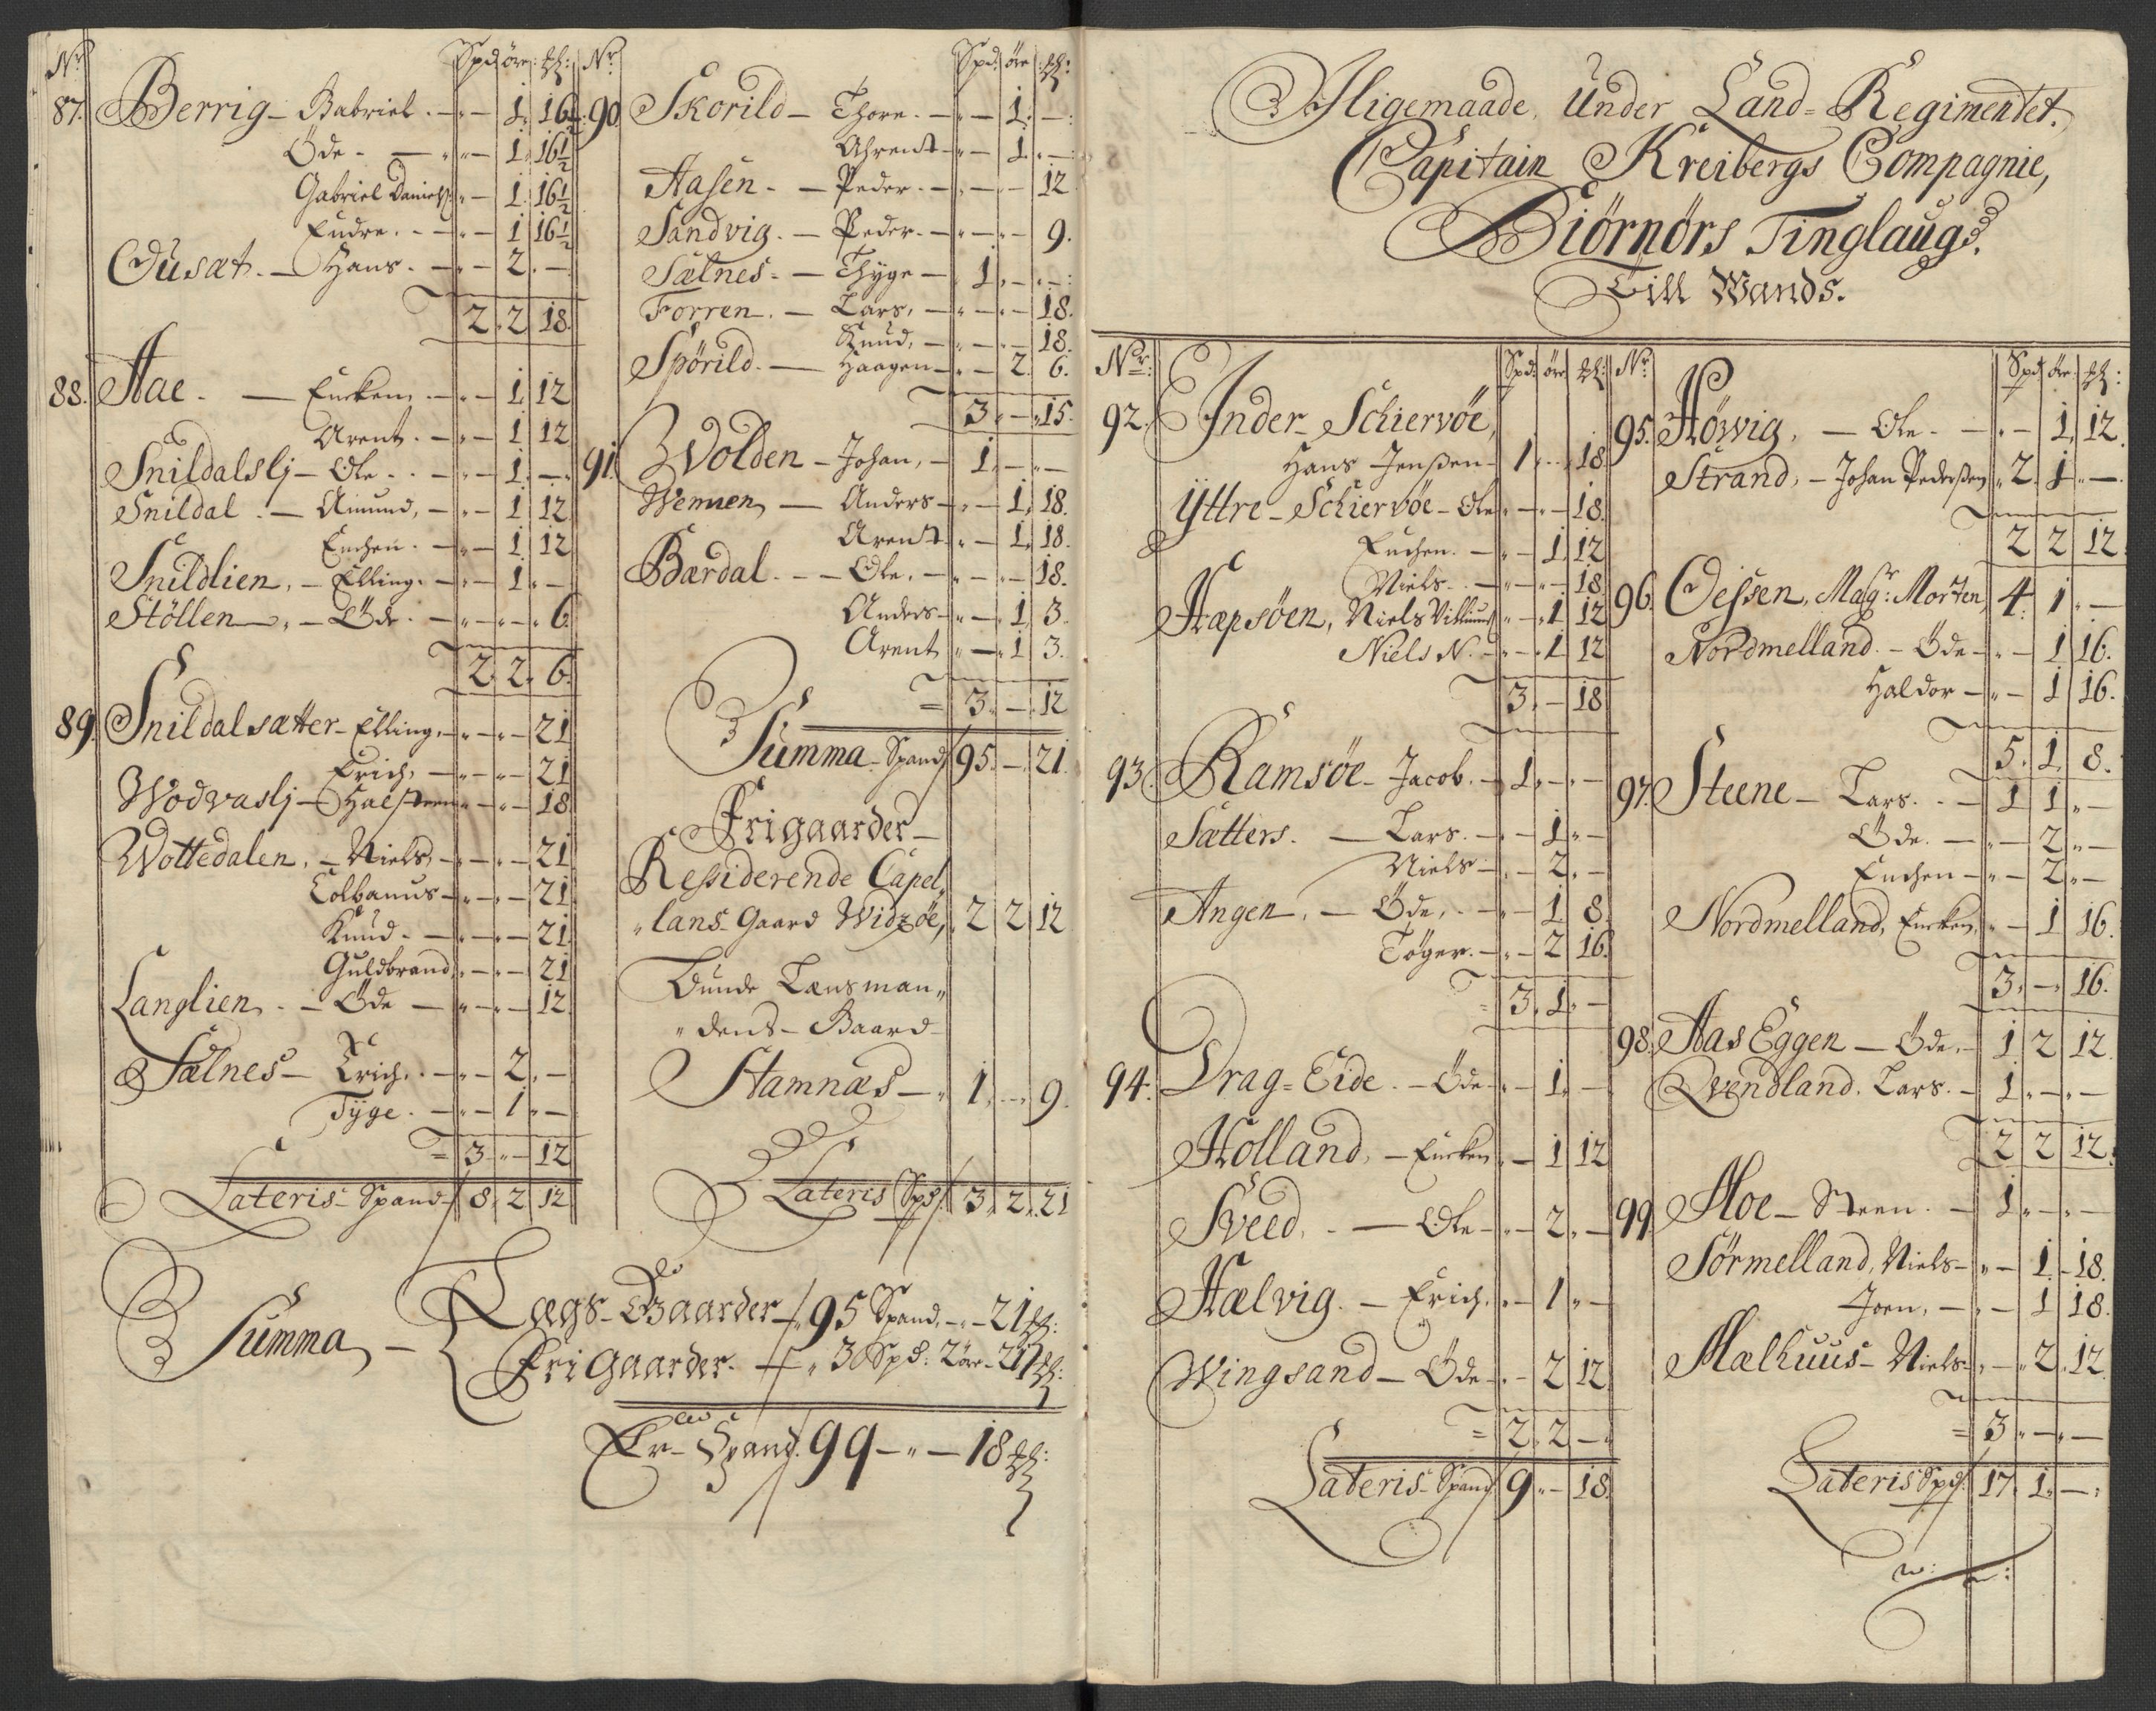 Nr. Spd: öre: ℔:
87. Berrig - Gabriel. - „ - 1. 16½
Öde - - „ - 1. 16½
Gabriel Daniels: „ - 1. 16½
Endre. - „ - 1 16½
Dusæt. - Hans. - „ - 2. -
2. 2 18.
88. Aae. - Encken - „ - 1. 12
Arent. - „ - 1 12
Snildalslj - Ole. - „ - 1. -
Snildal - Amund, - „ - 1 12
Enchen. - „ - 1. 12
Snildlien, - Elling. - „ - 1. -
Stöllen, - Öde. - „ - „ - 6.
2. 2. 6.
89. Snildalsætter - Elling. - „ - „ - 21
Erich, - „ - „ - 21
Wodvaslj - Halsteen - „ - „ - 18
Wottedalen, - Niels, - „ - „ - 21
Colbanus - „ - „ - 21
Knud. - „ - „ - 21
Guldbrand, „ - „ - 21
Langlien. - Öde - „ - „ - 12.
Sælnes - Erich. - „ - 2. -
Tÿge. - „ - 1 „ -
= 3 - „ - 12
Lateris - Spand 8. 2 12
Nr. Spd: öre: ℔:
90. Skorild - Thore. - „ - 1. -
Ahrent - „ - 1. -
Aasen. - Peder. - „ - „ - 12
Sandvig. - Peder. - „ - „ - 9.
Sælnes. - Thyge - 1. - „ -
Forren. - Lars, - „ - „ - 18.
Knud, - „ - „ - 18.
Spörild. - Haagen - „ - 2. 6.
3. - „ 15.
91. Wolden - Johan, - 1. - „ -
Wennen, - Anders - „ - 1. 18.
Arent. „ - 1. 18.
Bærdal. - Ole. - „ - „ - 18.
Anders - „ - 1. 3.
Arent „ - 1 3.
= 3. - „ 12
Summa - Spand 95. - „ 21.
Frigaarder -
Ressiderende Capel„
„lans - Gaard Widzöe, „ 2 2 12
Bunde Lænsman„
„dens - Gaard -
Stamnæs - „ 1. - „ 9.
Lateris Spd. 3. 2. 21
Summa, - Lægs - Gaarder - „ 95 Spand, - „ - 21 ℔:
Fri Gaarder. - „ 3 Spd: 2 öre - 21 ℔:
Er - Spand. 99 - „ - 18 ℔:
Iligemaade, Under Land - Regimentet.
Capitain Kreibergs Compagnie,
Biörnörs Tinglaug.
Till Wands.
Nr. Spd: öre ℔:
92. Inder - Schiervöe,
Hans Jenssen - 1. - „ 18
Ÿttre - Schiervöe - Ole „ - „ - 18.
Enchen. - „ - 1. 12
Niels. - „ - „ - 18.
Hæpsöen, Niels „ - „ 1 12
Niels N. - „ - „ 1 12
3. - 18
93. Ramsöe - Jacob. - 1. - „ -
Sætters. - Lars. - „ - 1 „ -
Niels - „ - 2. -
Angen, - Öde. - „ - 1. 8.
Töger. - „ - 2 16.
= 3. 1. -
94. Drag = Eide. - Öde - „ - 1. -
Holland, - Encken „ - 1 12
Sveed. - Ole - „ - 2. -
Hælvig. - Erich. „ - 1 „ -
Wingsand - Öde - „ - 2 12
= 2. 2 - „
Lateris - Spand 9 „ - 18.
Nr. Spd: öre ℔:
95. Höwig, - Ole. - „ - 1. 12.
Strand, - Johan Pederssen „ 2. 1 „ -
2 2 12
96. Oessen, Magr: Morten, 4. 1 „ -
Nordmelland. - Öde - „ - 1. 16.
Haldor - „ - 1 16.
5. 1. 8.
97. Steene - Lars. - 1 1 „ -
Öde. - „ - 2 „ -
Enchen - „ - 2 „ -
Nordmelland, Encken, „ - 1 16.
3. - „ 16.
98. Aas Eggen - Öde, - 1 2 12.
Qvendland. Lars. - 1. - „ -
2 2 12.
99. Moe - Steen. - 1. - „ -
Sörmelland, Niels - „ - 1. - 18.
Joen, - „ - 1 18.
Mælhuus - Niels - „ - „ 2. 12.
= 3 „ - „ -
Lateris Spd. 17. 1. -